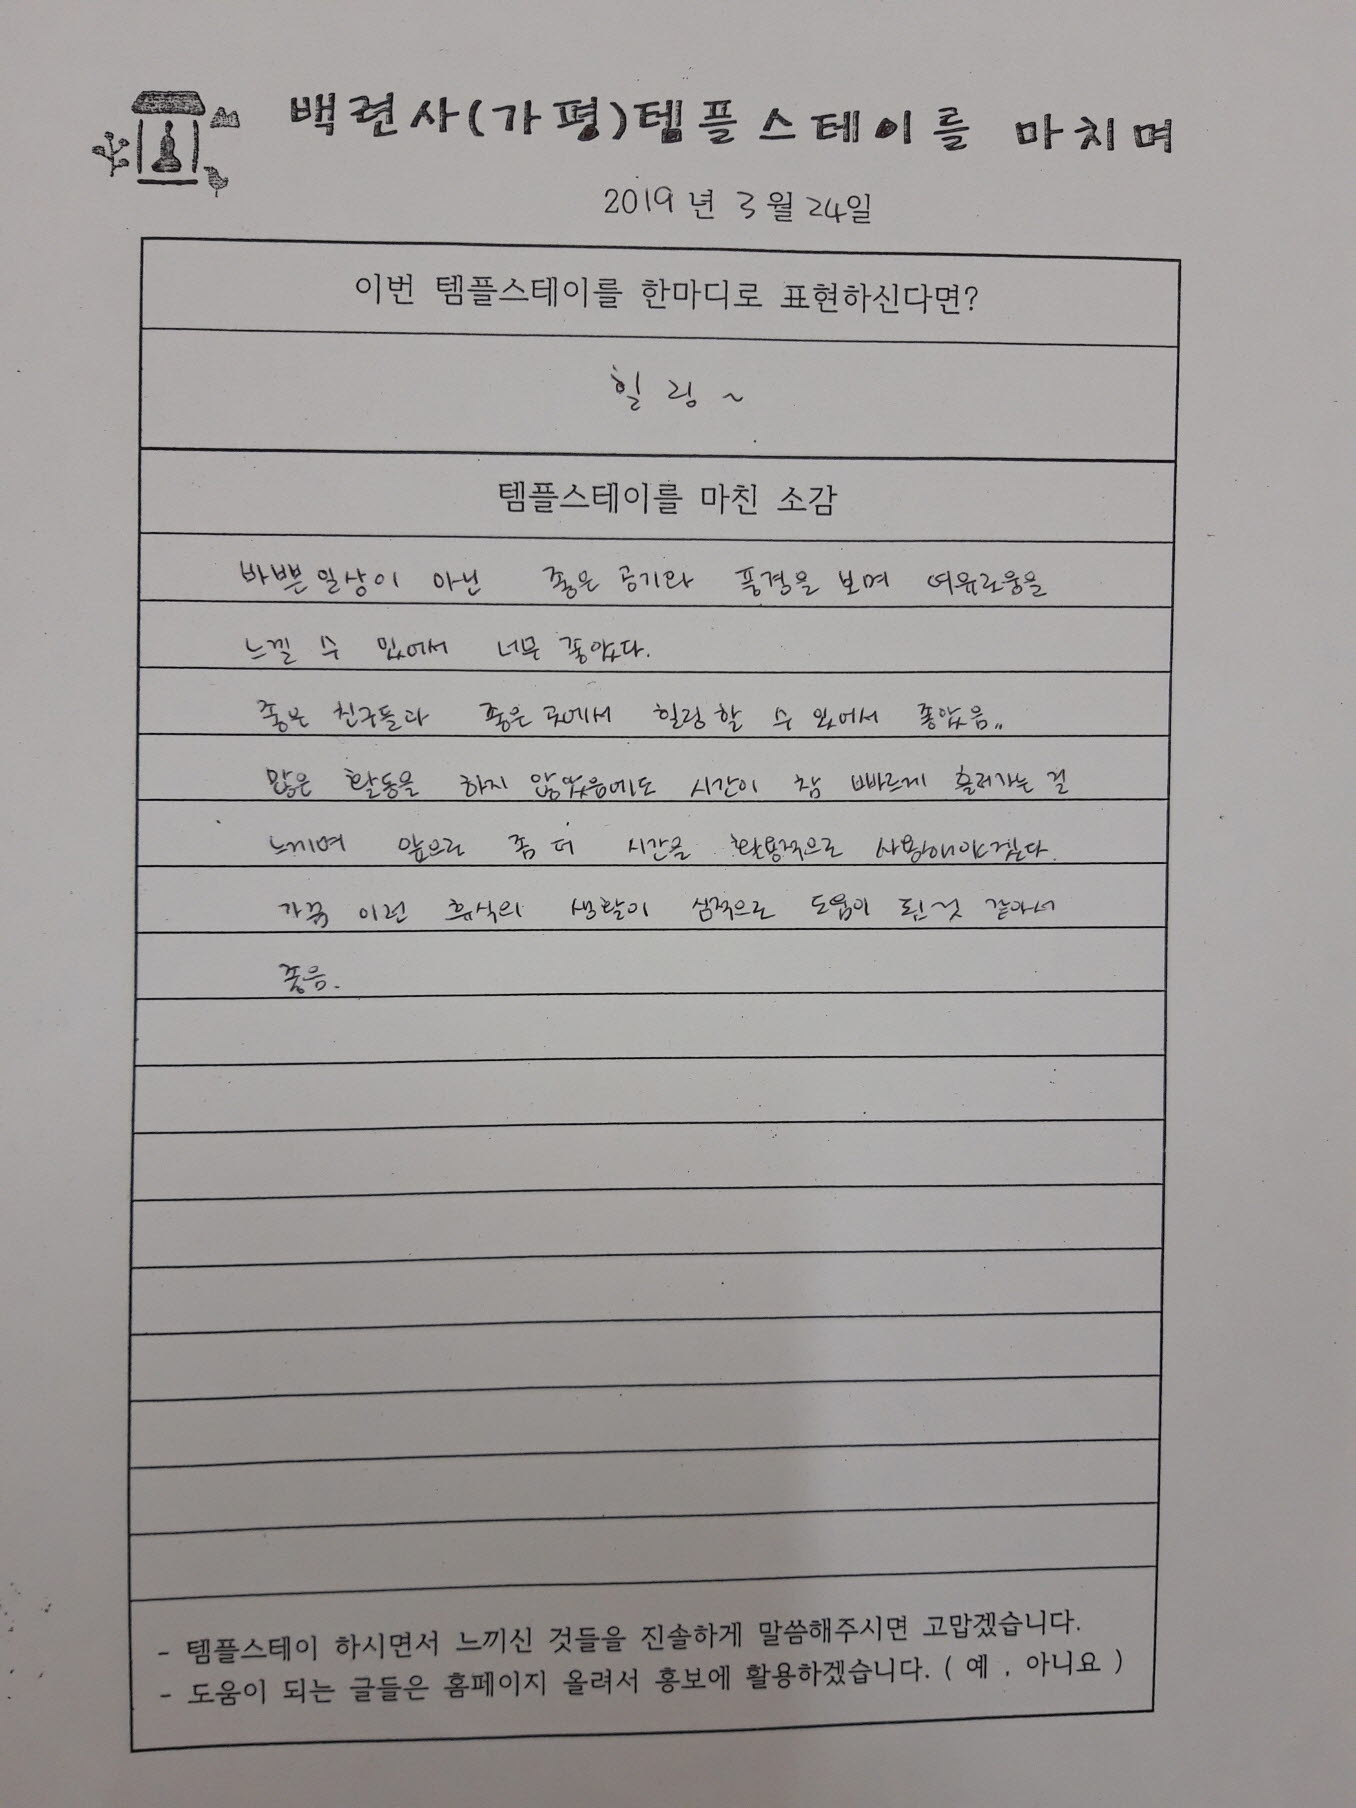 백련사(가평)템플스테이를 마치며
2019년 3월 24일
이번 템플스테이를 한마디로 표현하신다면?
힐링~
템플스테이를 마친 소감
바쁜 일상이 아닌 좋은 공기와 풍경을 보며 여유로움을
느낄 수 있어서 너무 좋았다.
좋은 친구들과 좋은 곳에서 힐링할 수 있어서 좋았음..
많은 활동을 하지 않았음에도 시간이 참 빠르게 흘러가는 걸
느끼며 앞으로 좀 더 시간을 활용적으로 사용해야겠다.
가끔 이런 휴식의 생활이 심적으로 도움이 된 것 같아서
좋음.
- 템플스테이 하시면서 느끼신 것들을 진솔하게 말씀해주시면 고맙겠습니다.
- 도움이 되는 글들은 홈페이지 올려서 홍보에 활용하겠습니다. ( 예 , 아니요 )